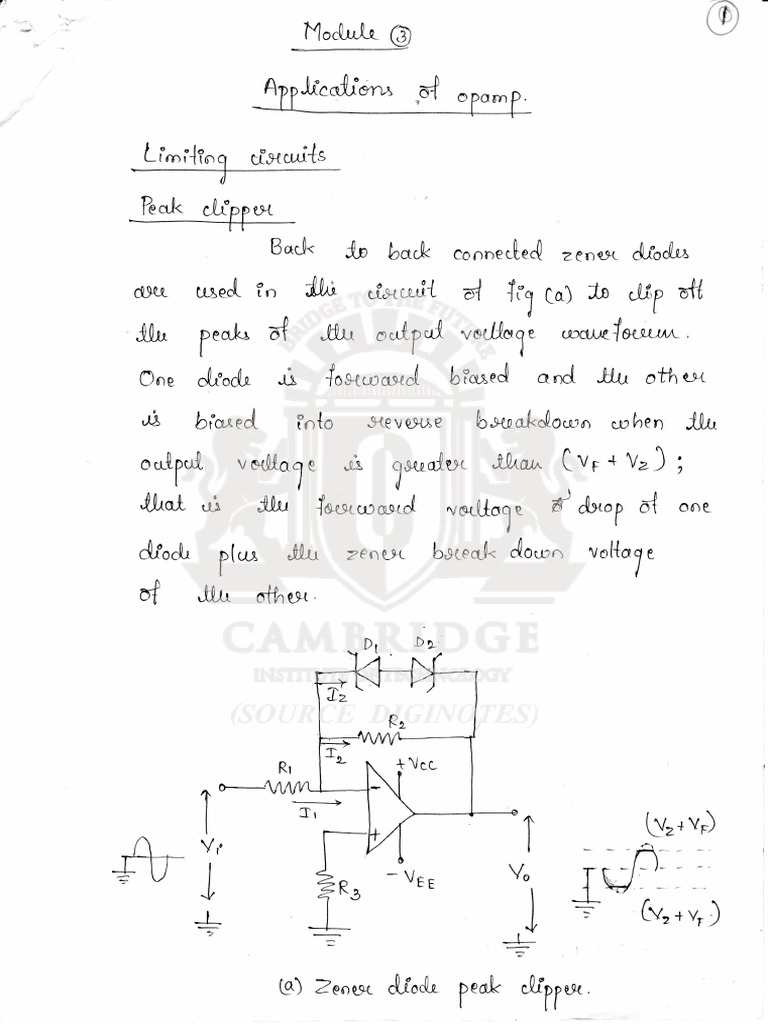 1
Module 3
Applications of opamp.
Limiting circuits
Peak clipper
Back to back connected zener diodes
are used in the circuit of fig (a) to clip off
the peaks of the output voltage waveform.
One diode is forward biased and the other
is biased into reverse breakdown when the
output voltage is greater than (VF + VZ) ;
that is the forward voltage drop of one
diode plus the zener break down voltage
of the other.
BRIDGE TO THE FUTURE
CAMBRIDGE
INSTITUTE OF TECHNOLOGY
(SOURCE DIGINOTES)
D1 D2
IZ
R2
I2
+VCC
R1
I1
-
+
Vi
R3
-VEE
Vo
(VZ + VF)
(VZ + VF)
(a) Zener diode peak clipper.